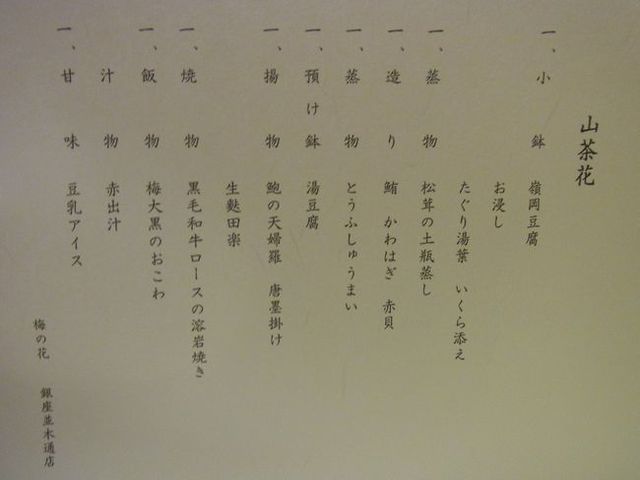 山茶花
一、小鉢 嶺岡豆腐
お浸し
たぐり湯葉 いくら添え
一、蒸物 松茸の土瓶蒸し
一、造り 鮪 かわはぎ 赤貝
一、蒸物 とうふしゅうまい
一、預け鉢 湯豆腐
一、揚物 鮑の天婦羅 唐墨掛け
生麩田楽
一、焼物 黒毛和牛ロースの溶岩焼き
一、飯物 梅大黒のおこわ
汁物 赤出汁
一、甘味 豆乳アイス
梅の花 銀座並木通店